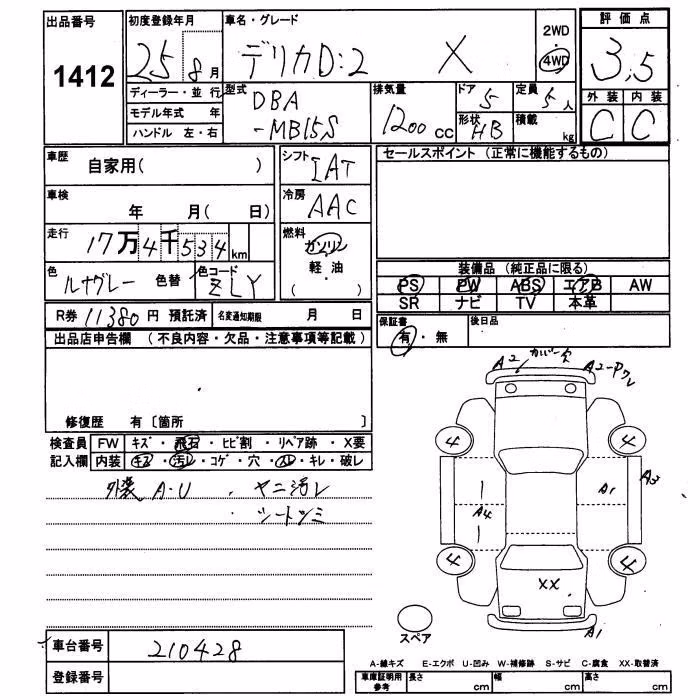 出品番号
1412
初度登録年月
25 8月
車名・グレード
デリカD:2 X
2WD
4WD
評価点
3.5
外装 内装
C C
ディーラー・並行
モデル年式 年
ハンドル 左・右
型式
DBA
-MB15S
排気量
1200 cc
ドア 5
形状 HB
定員 5人
積載 kg
車歴
自家用( )
シフト
IAT
セールスポイント (正常に機能するもの)
車検
年 月( 日)
冷房
AAC
走行
17万4千534km
燃料
ガソリン
軽・油
( )
色
ルナグレー 色替
色コード
ZLY
装備品 (純正品に限る)
PS PW ABS エアB AW
SR ナビ TV 本革
R券 11380円 預託済
名変通知期限 月 日
保証書
有・無
後日品
出品店申告欄 (不良内容・欠品・注意事項等記載)
修復歴 有〔箇所 〕
検査員
記入欄
FW キズ・飛石・ヒビ割・リペア跡・X要
内装 キズ・汚レ・コゲ・穴・スレ・キレ・破レ
外装 A・U ・ヤニ汚レ
・シートシミ
A2 カバー欠 A2-Pワレ
4 4
A4 A1 A3
4 4
XX
スペア
A1
車台番号
210428
登録番号
A-線キズ E-エクボ U-凹み W-補修跡 S-サビ C-腐食 XX-取替済
車庫証明用
参考
長さ cm 幅 cm 高さ cm